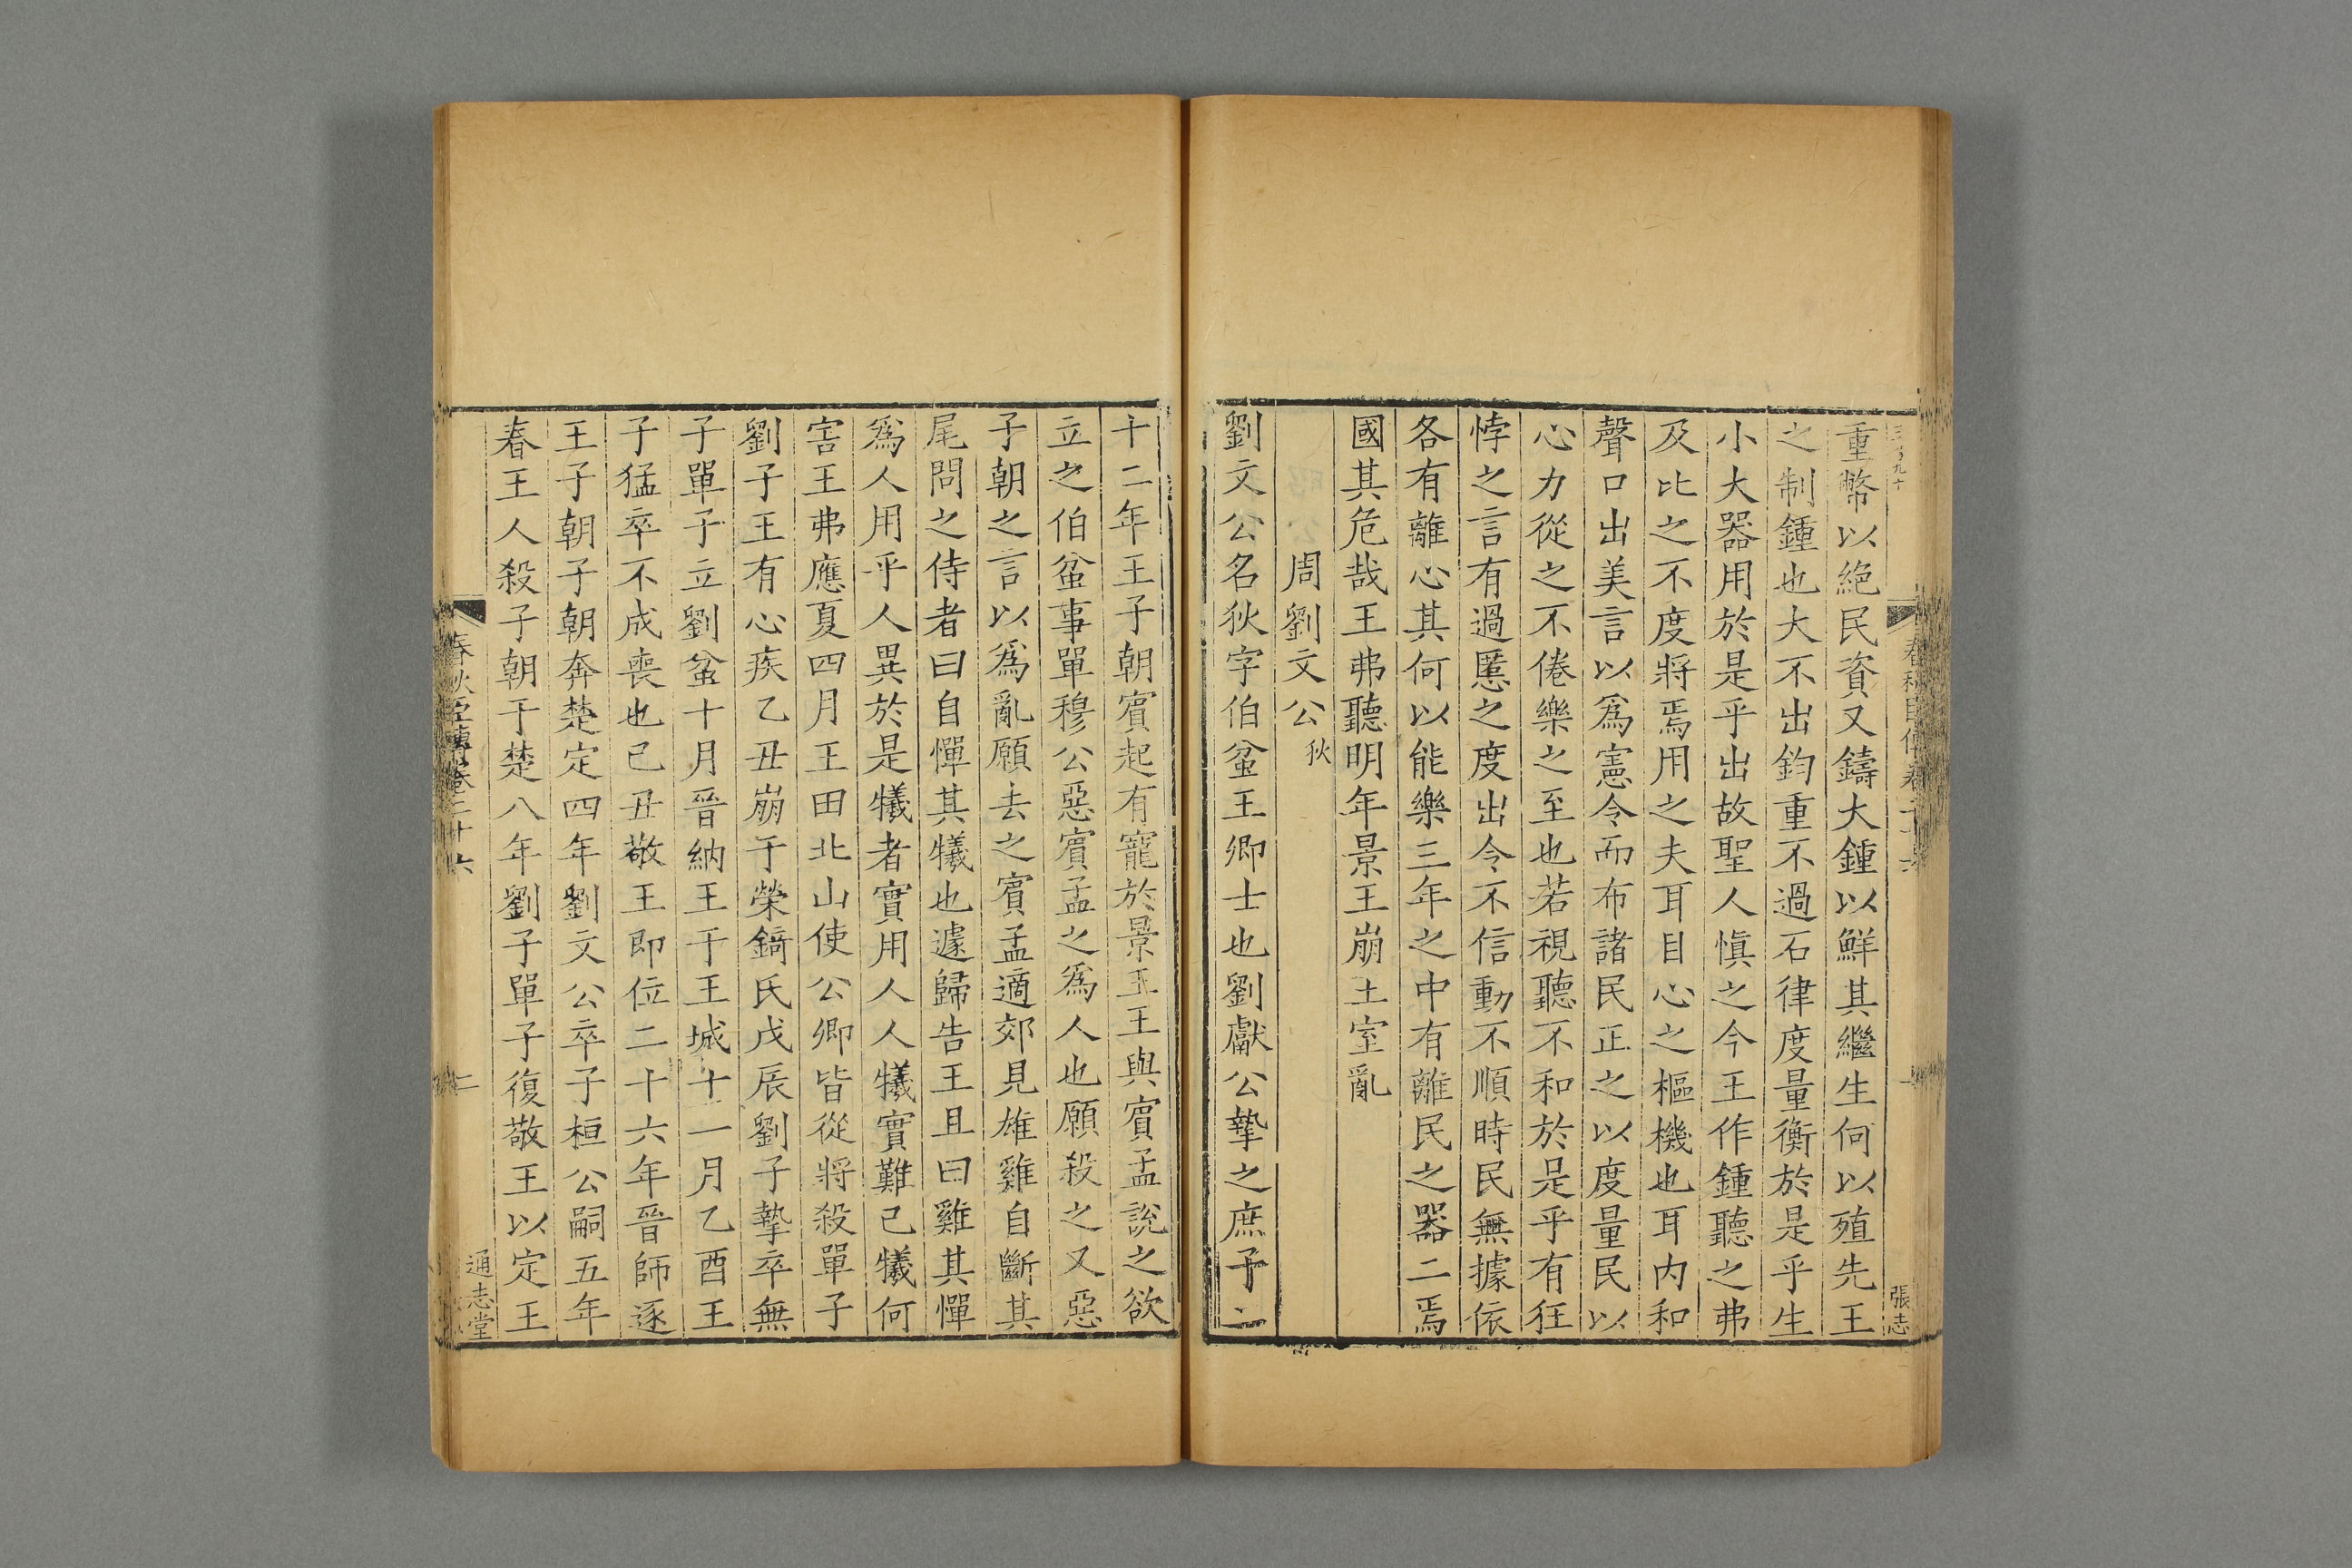 重幣以絕民資又鑄大鍾以鮮其繼生何以殖先王
之制鍾也大不出鈞重不過石律度量衡於是乎生
小大器用於是乎出故聖人愼之今王作鍾聽之弗
及比之不度將焉用之夫耳目心之樞機也耳内和
聲口出美言以爲憲令而布諸民正之以度量民以
心力從之不倦樂之至也若視聽不和於是乎有狂
悖之言有過慝之度出令不信動不順時民無據依
各有離心其何以能樂三年之中有離民之器二焉
國其危哉王弗聽明年景王崩王室亂
周劉文公狄
劉文公名狄字伯蚠王卿士也劉獻公摯之庶子二
張志
十二年王子朝賔起有寵於景王王與賔孟說之欲
立之伯蚠事單穆公惡賔孟之爲人也願殺之又惡
子朝之言以爲亂願去之賔孟適郊見雄雞自斷其
尾問之侍者曰自憚其犧也遽歸告王且曰雞其憚
爲人用乎人異於是犧者實用人人犧實難己犧何
害王弗應夏四月王田北山使公卿皆從將殺單子
劉子王有心疾乙丑崩于榮錡氏戊辰劉子摯卒無
子單子立劉蚠十月晉納王于王城十一月乙酉王
子猛卒不成喪也己丑敬王即位二十六年晉師逐
王子朝子朝奔楚定四年劉文公卒子桓公嗣五年
春王人殺子朝于楚八年劉子單子復敬王以定王
春秋臣傳卷二十六
二
通志堂